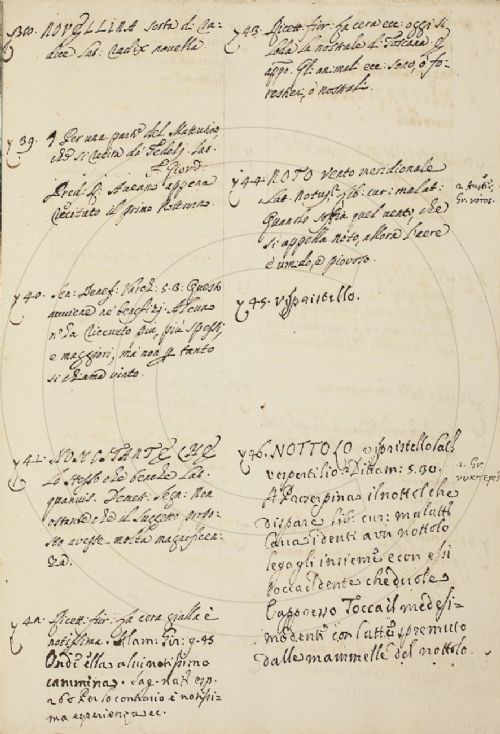 NOVELLINA sorta di Ra-
dice Lat. Radix novella
y 39. ¶ Per una parte del Mattutino
che si recita da Fedeli. Lat.
F. Giord.
Pred. R. Aveano appena
recitato il primo Notturno.
y 40. Sen: Benef. Varch: 5. 3. Questo
avviene ne' benefizj. Alcuno
n'ha ricevuto più, più spessi,
e maggiori, ma non tanto
si chiama vinto.
y 41. NONOSTANTE CHE
Lo stesso che benche Lat.
quamvis. Segn: Non
ostante che il Suggetto propo-
sto avesse molta magnificen-
za.
Ricett: fior: La cera gialla è
notissima. Alam: Gir: 9. 45
Ond' ella a lui notissimo
cammina. Sag. nat. esp.
266 Per lo contrario è notissi-
ma esperienza ec.
y 43. Ricett: fior: La cera ecc: oggi si
loda la nostrale di Toscana. E
appo. Gli animali ecc: sono, o fo-
restieri, o nostrali.
y 44 NOTO vento meridionale
Lat. Notus. lib: cur: malat:
Quando soffia quel vento, che
si appella noto, allora l'aere
è umido, e piovoso.
Gr. νότος.
y 45. vispistrello.
y 46. NOTTOLO vispistrello Lat.
vespertilio Dittam: 5. 30.
il nottol che
dispare lib: cur: malatt:
Cava i denti a un nottolo
legagli insieme e con essi
tocca il dente che duole
Appresso Tocca il medesi-
mo dente con latte spremuto
dalle mammelle del nottolo.
Gr.
νυκτερίς